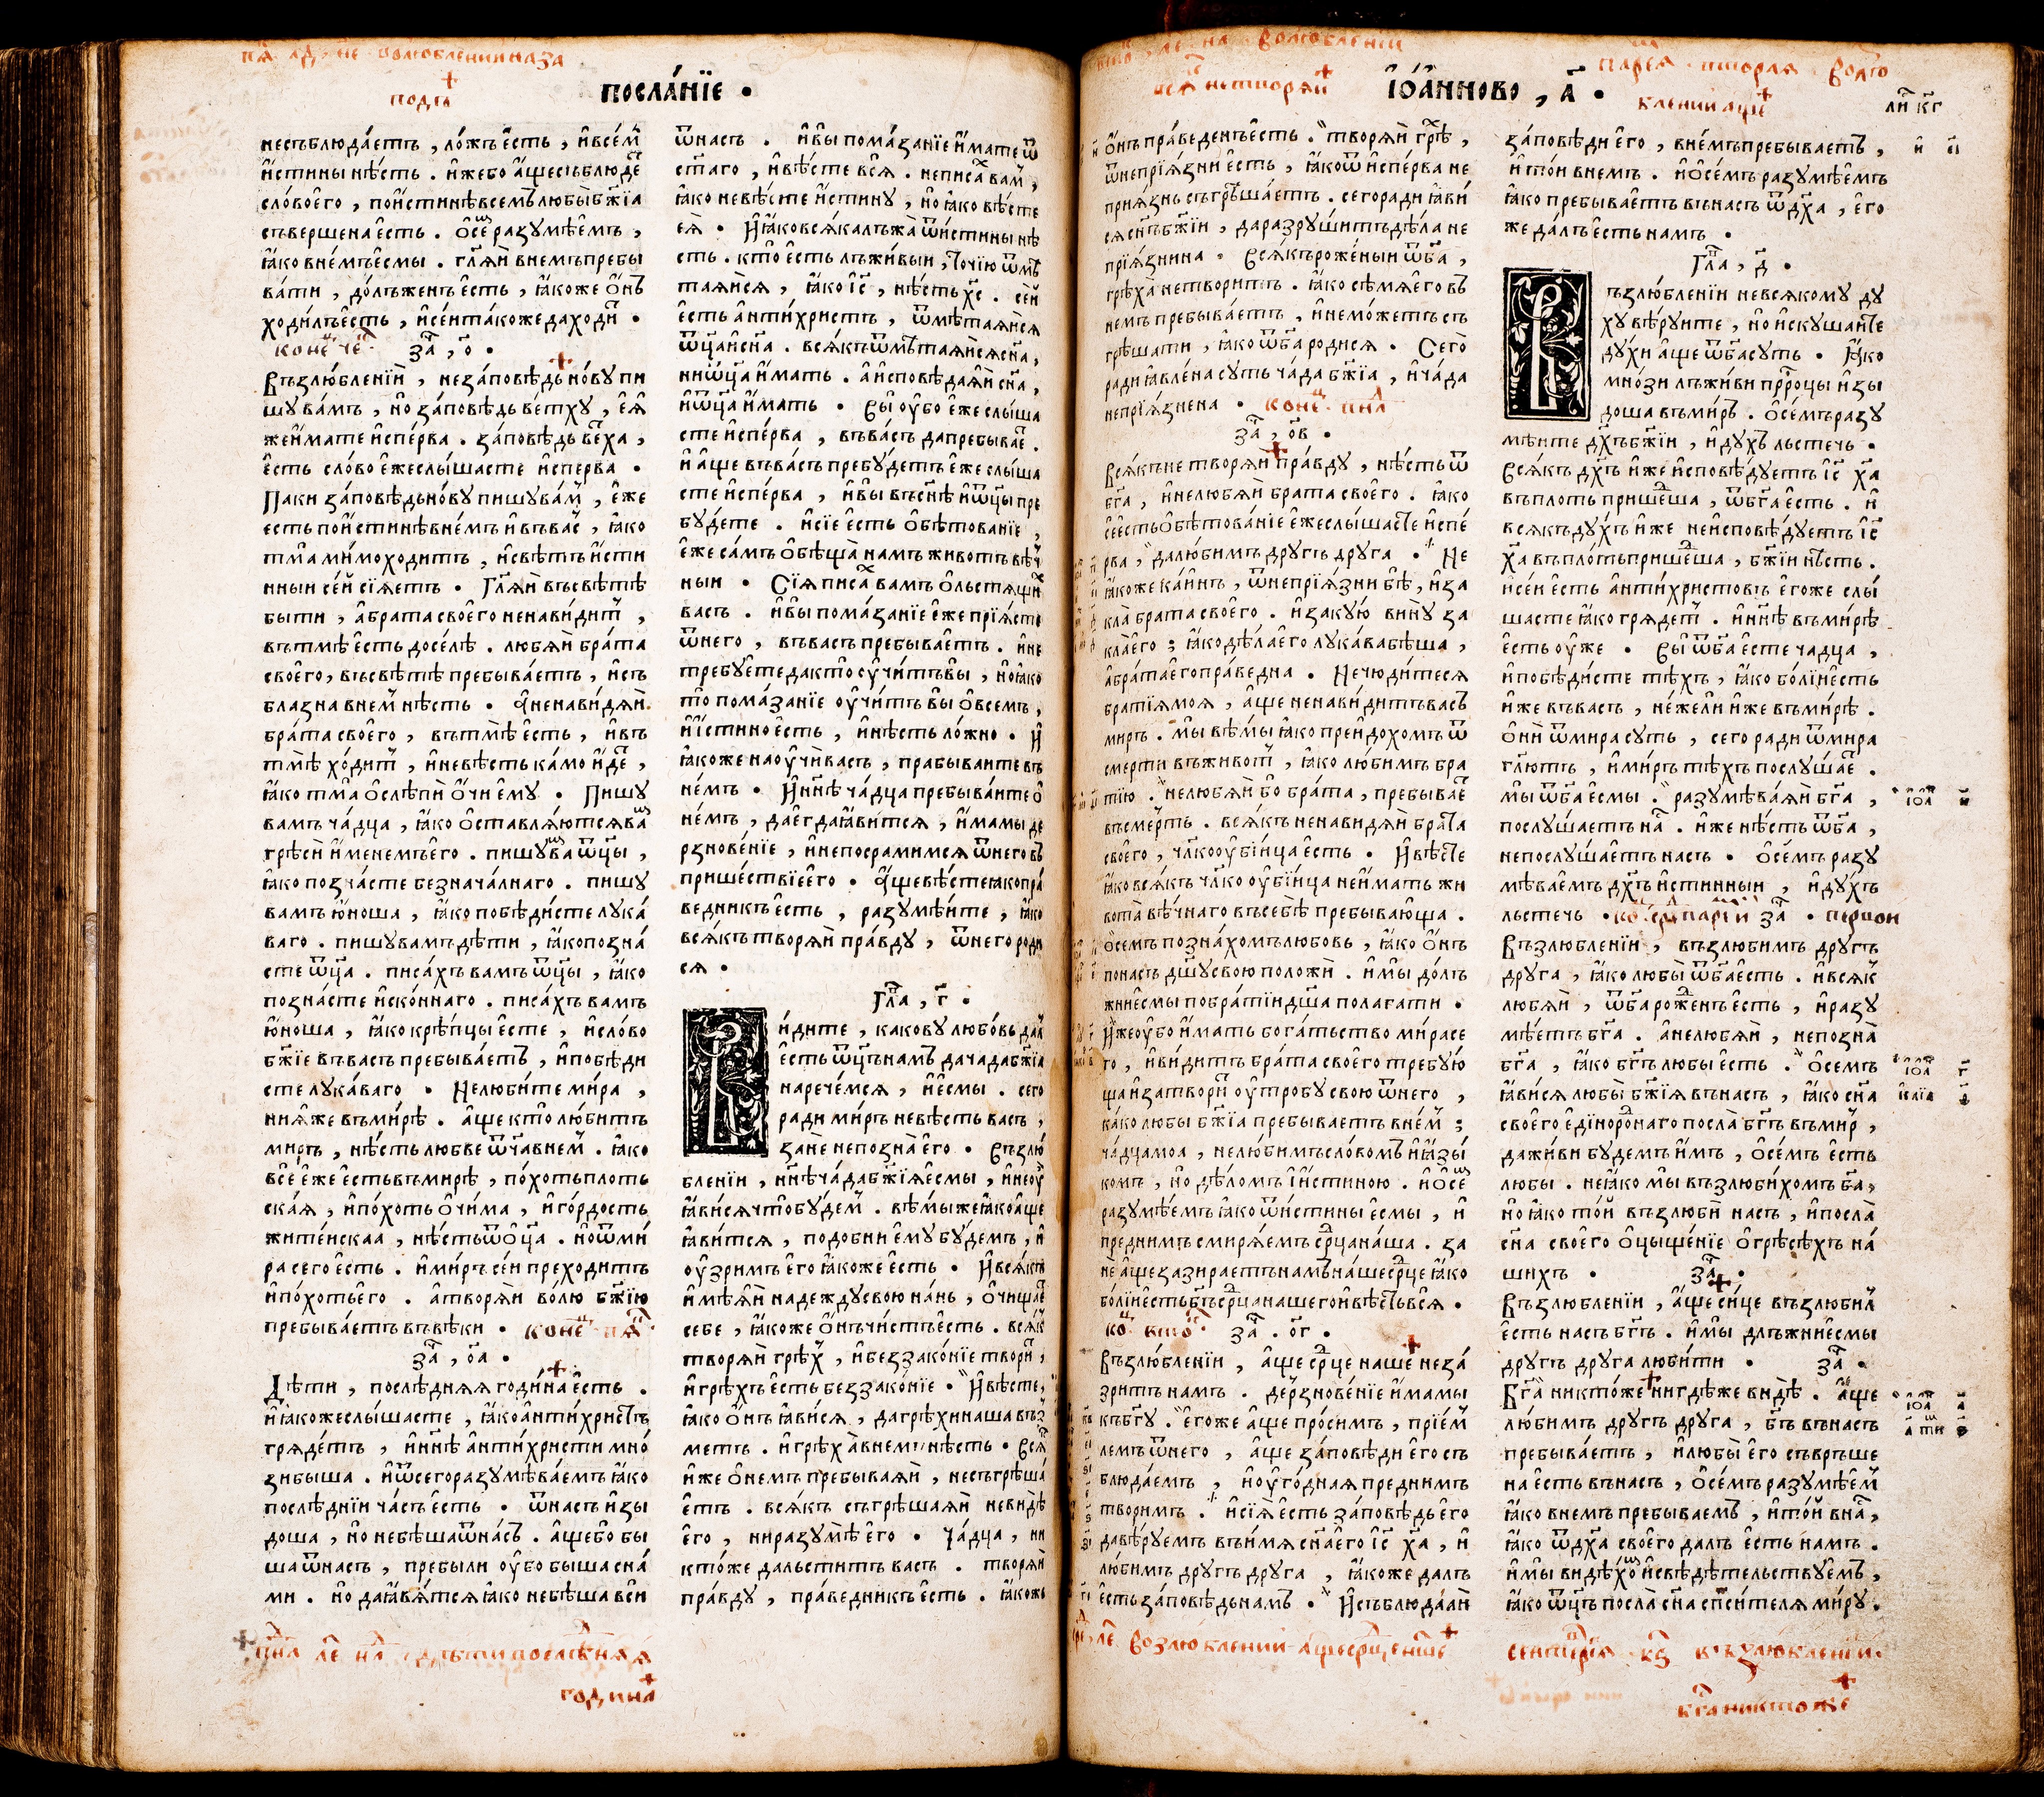 посла́нїе •
несъблюда́етъ , ло́жъ е́сть , и҆всем̑
и҆́стины нѣ́сть . и҆жебо а҆́щесъблюде̑
сло́воего̀ , пои҆́стиннѣ всемъ любы̀ бж҃їа
съвершена е́сть . О҆се̑ разꙋмѣ́емъ ,
ꙗ҆́ко внемъ есмы̀ . гл҃яи внемъ пребы
ва́ти , до́лъженъ е́сть , ꙗ҆́коже о҆́нъ
ходи́лъ е́сть , и҆се́и та́коже да ходи̑ •
коне̑ че̑ за҃ , ѻ҃ •
Възлю́бленїи , неза́повѣдь но́вꙋ пи
шꙋ ва́мъ , но̀ за́повѣдь ве́тхꙋ , ею̀
же и҆́мате и҆спе́рва . за́повѣдь ве̑ха ,
е́сть сло́во е́же слы́шасте и҆сперва •
Паки за́повѣдь но́вꙋ пишꙋ ва̑м , е́же
есть пои҆́стиннѣ внемъ и҆въ ва̑с , ꙗ҆́ко
тма̀ мимохо́дитъ , и҆свѣ́тъ и҆́сти
нныи се́й сїя́етъ • Гл҃яи въсвѣ́тѣ
быти , а҆бра́та своего̀ ненави́дит̑ ,
вътмѣ̀ е́сть досе́лѣ . любя́и бра́та
своего̀ , въсвѣ́тѣ пребыва́етъ , и҆съ
бла́зна внем̑ нѣ́сть • а҆ненави́дяи
бра́та своего̀ , вътмѣ̀ е́сть , и҆въ
тмѣ̀ хо́дит̑ , и҆невѣ́сть ка́мо и҆́де̑ ,
ꙗ҆́ко тма̀ о҆слѣпѝ о҆́чи е҆мꙋ̀ • Пишꙋ̀
вамъ ча́дца , ꙗ҆́ко о҆ставля́ются ва̑
грѣсѝ и҆́менемъ его̀ . пишꙋ ва̑ ѿц҃ы ,
ꙗ҆́ко позна́сте безнача́лнаго . пишꙋ
вамъ ю҆́ноша , ꙗ҆́ко побѣди́сте лꙋка́
ваго . пишꙋ вамъ дѣ́ти , ꙗ҆́ко позна́
сте ѿц҃а . писа́хъ вамъ ѿц҃ы , ꙗ҆́ко
позна́сте и҆ско́ннаго . писа́хъ вамъ
ю҆́ноша , ꙗ҆́ко крѣ́пцы е́сте , и҆сло́во
бж҃їе въвасъ пребыва́етъ , и҆побѣди
сте лꙋка́ваго • Нелюби́те ми́ра ,
ния́же въми́рѣ . а҆́ще кто̀ лю́битъ
миръ , нѣ́сть любве ѿч҃а внем̑ . ꙗ҆́ко
всѐ е́же е́сть въмирѣ , по́хоть плоть
ская , и҆по́хоть о҆чи́ма , и҆го́рдость
жите́искаа , нѣ́сть ѿ о҆ц҃а . но̀ ѿ ми́
ра сего̀ е́сть . и҆ми́ръ се́и преходитъ
и҆по́хоть его̀ . а҆творя́и во́лю бж҃їю
пребыва́етъ въвѣ́ки • коне̑ пя̑
за҃ , ѻ҃а •
Дѣ́ти , послѣ́дняя годи́на е́сть .
и҆ ꙗ҆́коже слы́шасте , ꙗ҆́ко а҆нти́христъ
гряде́тъ , и҆нн҃ѣ а҆нти́христи мно́
зи быша . и҆ ѿ сего разꙋмѣва́емъ ꙗ҆́ко
послѣ́днїи ча́съ е́сть • ѿ насъ и҆зы
доша , но̀ небѣ́ша ѿ на́съ . а҆́ще бо̀ бы
ша ѿ насъ , пребы́ли ᲂу҆́бо быша сна́
ми . но̀ да ꙗ҆вя́тся ꙗ҆́ко небѣ́ша вси
годи́на
ѿ насъ . и҆вы̀ помаза́нїе и҆́мате ѿ
ст҃аго , и҆вѣ́сте вся . неписа̑х вам̑ ,
ꙗ҆́ко невѣ́сте и҆́стинꙋ , но̀ ꙗ҆́ко вѣ́сте
ея̀ . И ꙗ҆́ко вся́ка лъжа̀ ѿ и҆́стины нѣ
сть . кто̀ есть лъжи́выи , то́чїю ѿмѣ
тая́ися , ꙗ҆́ко і҆с҃ , нѣ́сть х҃с . се́й
е́сть а҆нти́христъ , ѿмѣтая́ися
ѿц҃а и҆сн҃а . вся́къ ѿмѣтая́ися сн҃а ,
ни ѿц҃а и҆́мать . а҆ и҆сповѣ́даяи сн҃а ,
и҆ ѿц҃а и҆́мать • Вы̀ ᲂу҆́бо е́же слы́ша
сте и҆спе́рва , въва́съ да пребывае̑ .
и҆ а҆́ще въва́съ пребꙋ́детъ е́же слы́ша
сте и҆спе́рва , и҆вы̀ въсн҃ѣ и҆ ѿц҃ы пре
бꙋ́дете . и҆сїѐ е́сть о҆бѣтова́нїе ,
е́же са́мъ о҆бѣща̀ намъ живо́тъ вѣ́ч
ныи • Сїя̀ писа̑х вамъ о҆льстя́щи̑х
васъ . и҆вы̀ помаза́нїе е́же прїя́сте
ѿ него , въвасъ пребыва́етъ . и҆не
тре́бꙋете да кто̀ ᲂу҆чи́тъ вы̀ , но̀ ꙗ҆́ко
то̀ помаза́нїе ᲂу҆чи́тъ вы̀ о҆всемъ ,
и҆ и҆́стинно е́сть , и҆нѣ́сть ло́жно . И
ꙗ҆́коже наᲂу҆чѝ васъ , прабываите въ
не́мъ • И нн҃ѣ ча́дца пребыва́ите в
не́мъ , да егда̀ ꙗ҆ви́тся , и҆́мамы де
рзнове́нїе , и҆непосрамимся ѿ него въ
прише́ствїе его̀ • а҆́ще вѣ́сте ꙗ҆́ко пра́
ведникъ е́сть , разꙋмѣ́ите , ꙗ҆́ко
вся́къ творя́и пра́вдꙋ , ѿ него роди
ся •
Гла҃ , г҃ •
Ви́дите , каковꙋ любо́вь дал̑
е́сть ѿц҃ъ намъ да чада бж҃їа
нарече́мся , и҆ есмы̀ . сего
ради ми́ръ невѣ́сть васъ ,
занѐ непозна̀ его̀ • Възлю́
бленїи , нн҃ѣ ча́да бж҃їя есмы̀ , и҆не ᲂу҆
ꙗ҆ви́ся что̀ бꙋ́дем̑ . вѣ́мы же ꙗ҆́ко а҆́ще
ꙗ҆ви́тся , подобни емꙋ̀ бꙋ́демъ , и҆
ᲂу҆́зримъ его̀ ꙗ҆́коже е́сть • И вся́къ
и҆мѣ́яи наде́ждꙋ свою на́нь , о҆чищае̑
себе , ꙗ҆́коже о҆́нъ чи́стъ е́сть . вся́к̑
творя́и грѣ̑х , и҆беззако́нїе твори̑ ,
и҆грѣ́хъ е́сть беззако́нїе • И вѣ́сте ,
ꙗ҆́ко о҆́нъ ꙗ҆ви́ся , да грѣхи́ наша въз̑
метъ . и҆грѣха̀ внемъ нѣ́сть • Вся̑
и҆же о҆немъ пребывая́и , несъгрѣша́
етъ . вся́къ съгрѣшая́и неви́дѣ
его̀ , ни разꙋмѣ̀ его̀ • Ча́дца , ни
кто́же да льсти́тъ васъ . творя́и
пра́вдꙋ , пра́ведникъ е́сть . ꙗ҆́коже
І҆ѡа́нново , а҃ •
ли҃ кг
о҆́нъ пра́веденъ е́сть . творя́и грѣ̑х ,
ѿ непрїя́зни е́сть , ꙗ҆́ко ѿ и҆спе́рва не
прия́знь съгрѣша́етъ . сего ради ꙗ҆ви́
ся сн҃ъ бж҃їи , да разрꙋши́тъ дѣла не
прїя́знина . Вся́къ роже́ныи ѿ б҃а ,
грѣха̀ нетвори́тъ . ꙗ҆́ко сѣ́мя его въ
немъ пребыва́етъ , и҆немо́жетъ съ
грѣшати , ꙗ҆́ко ѿ б҃а роди́ся • Сего̀
ради ꙗ҆вле́на сꙋть ча́да бж҃їа , и҆ча́да
непрїя́знена • коне̑ пн҃л
за҃ , ѻ҃в •
Вся́къ не творя́и пра́вдꙋ , нѣ́сть ѿ
бг҃а , и҆нелюбя́и брата своего̀ . ꙗ҆́ко
се е́сть о҆бѣтова́нїе е́же слы́шасте и҆спе́
рва , да лю́бимъ дрꙋ́гъ дрꙋга • Не
ꙗ҆́коже ка́инъ , ѿ непрїя́зни бѣ̀ , и҆за
кла̀ брата своего̀ . и҆закꙋ́ю винꙋ̀ за
кла̀ его̀ ; ꙗ҆́ко дѣла его̀ лꙋка́ва бѣ́ша ,
а҆бра́та его̀ пра́ведна • Нечюди́теся
братїя моя̀ , а҆́ще ненави́дитъ васъ
миръ . мы̀ вѣ́мы ꙗ҆́ко преидо́хомъ ѿ
смерти въживот̑ , ꙗ҆́ко лю́бимъ бра
тїю . нелюбя́и бо̀ бра́та , пребывае̑
въсме́рть . вся́къ ненави́дяи бра́та
своего̀ , чл҃коᲂу҆бі́ица е́сть • И вѣ́сте
ꙗ҆́ко вся́къ чл҃коᲂу҆бі́ица неи҆́мать жи
вота̀ вѣ́чнаго въсебѣ̀ пребыва́юща .
о҆семъ позна́хомъ любо́вь , ꙗ҆́ко о҆́нъ
понасъ дш҃ꙋ свою положѝ . и҆мы̀ до́лъ
жни есмы̀ побра́тїи дш҃а полагати •
И҆же ᲂу҆́бо и҆́мать бога́тьство ми́ра се
го , и҆ви́дитъ бра́та своего̀ требꙋ́ю
ща и҆затвори̑ ᲂу҆тро́бꙋ свою ѿ него ,
ка́ко любы̀ бж҃їа пребываетъ вне́м̑ ;
ча́дца моа̀ , нелюбимъ сло́вомъ и҆ ꙗ҆зы́
комъ , но̀ дѣ́ломъ і҆и҆́стиною . и҆ о҆се̑
разꙋмѣ́емъ ꙗ҆́ко ѿ и҆́стины есмы̀ , и҆
преднимъ смиря́емъ ср҃ца на́ша . за
нѐ а҆́ще зазираетъ намъ на́ше ср҃це ꙗ҆́ко
бо́лїи е́сть бг҃ъ ср҃ца нашего и҆вѣ́сть вся •
за҃ . ѻ҃г •
Възлю́бленїи , а҆́ще ср҃це наше неза́
зритъ намъ . дерзнове́нїе и҆́мамы
къбг҃ꙋ . его́же а҆́ще про́симъ , прїе́м̑
лемъ ѿ него , а҆́ще за́повѣди его съ
блюда́емъ , и҆ ᲂу҆го́дная преднимъ
творимъ . и҆сїя̀ е́сть за́повѣдь его̀
да вѣ́рꙋемъ въи҆́мя сн҃а его̀ і҆с҃ х҃а , и҆
лю́бимъ дрꙋ́гъ дрꙋга , ꙗ҆́коже далъ
е́сть за́повѣдь намъ • И съблюда́аи
за́повѣди его̀ , вне́мъ пребыва́етъ ,
и҆ то́и внемъ . и҆ о҆се́мъ разꙋмѣ́емъ
ꙗ҆́ко пребыва́етъ въна́съ ѿ дх҃а , его
же да́лъ е́сть намъ •
Гла҃ , д҃ •
Възлю́бленїи невся́комꙋ дꙋ
хꙋ вѣ́рꙋите , но̀ и҆скꙋша́ите
дꙋ́хи а҆́ще ѿ б҃а сꙋть • Ꙗ҆ко
мно́зи лъжи́ви прⷪ҇роцы и҆зы
доша въми́ръ . О҆се́мъ разꙋ
мѣ́ите дх҃ъ бж҃їи , и҆дꙋхъ льстечь •
Вся́къ дх҃ъ и҆́же и҆сповѣ́дꙋетъ і҆с҃ х҃а
въплоть прише̑ша , ѿ бг҃а е́сть . и҆
всякъ дꙋ́хъ и҆́же неи҆сповѣ́дꙋетъ і҆с҃
х҃а въпло́ть прише̑ша , бж҃їи нѣсть .
и҆се́и е́сть а҆нти́христовъ его́же слы́
шасте ꙗ҆́ко гряде̑т . и҆нн҃ѣ въми́рѣ
е́сть ᲂу҆́же • Вы̀ ѿ б҃а есте ча́дца ,
и҆побѣди́сте тѣ́хъ , ꙗ҆́ко бо́лїи е́сть
и҆́же въвасъ , не́жели и҆́же въми́рѣ .
О҆нѝ ѿ мира сꙋть , сего ради ѿ мира
гл҃ють , и҆ми́ръ тѣ́хъ послꙋ́шае̑ .
мы̀ ѿ б҃а есмы̀ . разꙋмѣва́яи бг҃а ,
послꙋ́шаетъ на̑с . и҆́же нѣ́сть ѿ б҃а ,
непослꙋ́шаетъ насъ • О҆се́мъ разꙋ
мѣваемъ дх҃ъ и҆́стинныи , и҆дꙋ́хъ
льстечь • за҃ •
Възлюбленїи , възлю́бимъ дрꙋ́гъ
дрꙋга , ꙗ҆́ко любы̀ ѿ б҃а е́сть . и҆вся́к̑
любя́и , ѿ б҃а роженъ е́сть , и҆разꙋ
мѣ́етъ бг҃а . а҆нелюбя́и , непозна̀
бг҃а , ꙗ҆́ко бг҃ъ любы̀ е́сть . О҆семъ
ꙗ҆ви́ся любы̀ бж҃їя въна́съ , ꙗ҆́ко сн҃а
своего̀ едїноро̑наго посла̀ бг҃ъ въми̑р ,
да жи́ви бꙋ́демъ и҆́мъ , о҆се́мъ е́сть
любы̀ . неꙗ҆́ко мы̀ възлюби́хомъ б҃а ,
но̀ ꙗ҆́ко то́й възлюбѝ насъ , и҆посла̀
сн҃а своего̀ о҆цыще́нїе о҆грѣсѣ́хъ на́
шихъ • за҃ •
Възлюбленїи , а҆́ще си́це възлюби́л̑
е́сть насъ бг҃ъ . и҆мы̀ длъжни есмы̀
дрꙋ́гъ дрꙋга люби́ти • за҃ •
Бг҃а никто́же нигдѣ́же ви́дѣ . А҆ще
лю́бимъ дрꙋ́гъ дрꙋга , бг҃ъ въна́съ
пребыва́етъ , и҆любы̀ его̀ съвръше
на е́сть въна́съ , о҆се́мъ разꙋмѣ́ем̑
ꙗ҆́ко внемъ пребываемъ , и҆то́й вна̑с ,
ꙗ҆́ко ѿ дх҃а своего далъ е́сть намъ .
и҆мы̀ ви́дѣхо̑ и҆свѣдѣ́тельствꙋемъ ,
ꙗ҆́ко ѿц҃ъ посла̀ сн҃а спси́теля ми́рꙋ .